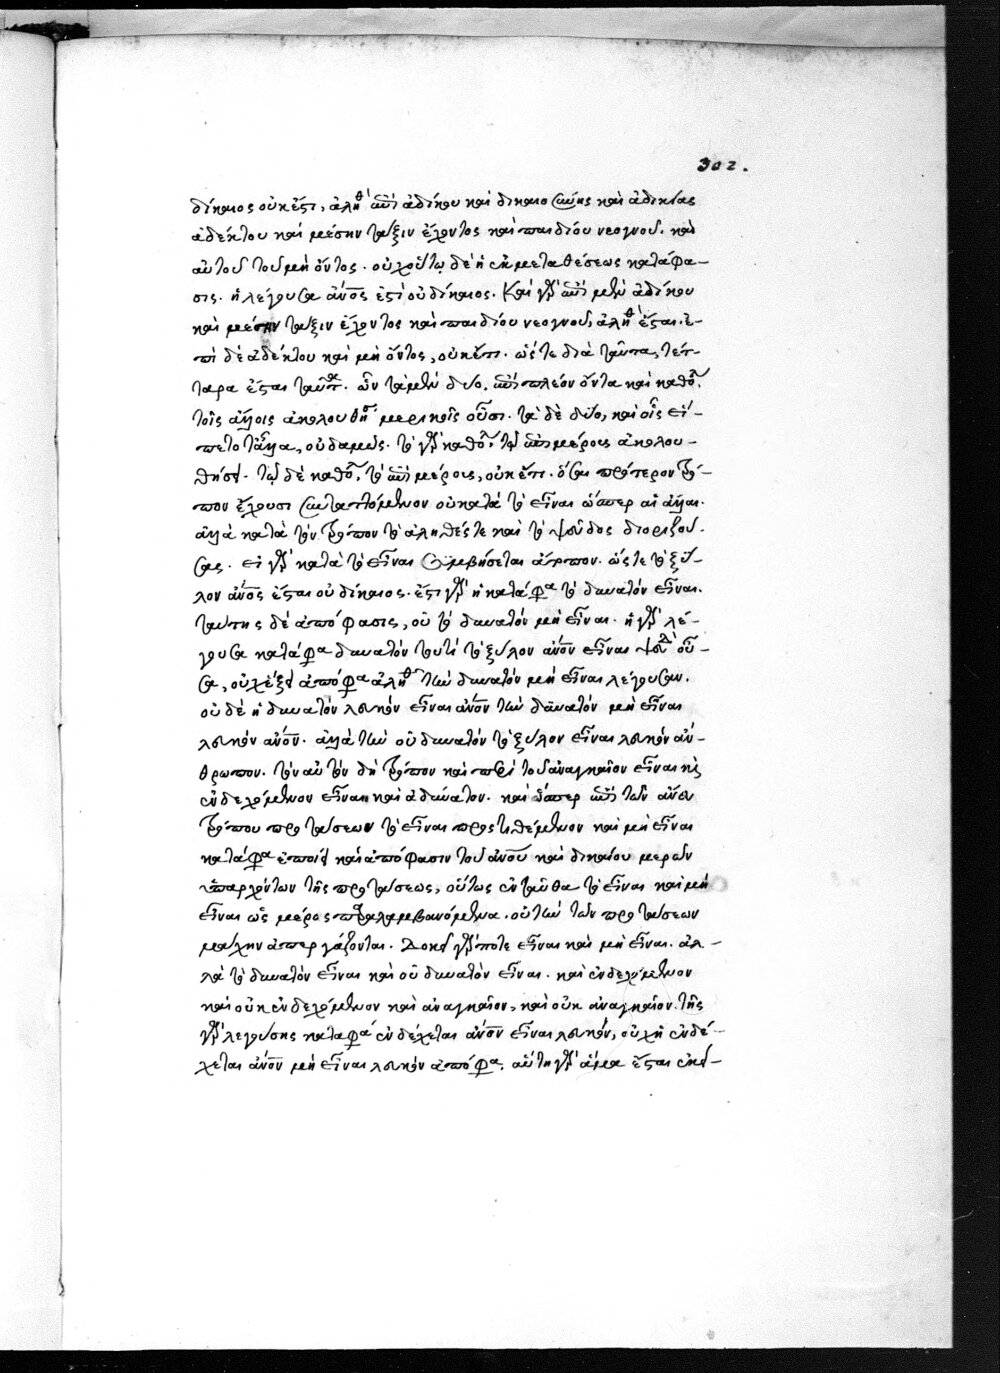 302.
δίκαιος οὐκ ἔστι, ἀληθ ἐπὶ ἀδίκου καὶ δικαιοσύνης καὶ ἀδικίας
ἀδέκτου καὶ μέσην τάξιν ἔχοντος καὶ παιδίου νεογνοῦ. καὶ
αὐτοῦ τοῦ μὴ ὄντος. οὐχ οὕτω δὲ ἡ ἐκ μεταθέσεως κατάφα-
σις. ἡ λέγουσα ἄνος ἐστὶ οὐ δίκαιος. καὶ γὰρ ἐπὶ μὲν ἀδίκου
καὶ μέσην τάξιν ἔχοντος καὶ παιδίου νεογνοῦ, ἀληθ ἔσται. ἐ-
πὶ δὲ ἀδέκτου καὶ μὴ ὄντος, οὐκέτι. ὥστε διὰ ταῦτα, τέτ-
ταρα ἔσται ταῦτα. ὧν τὰ μὲν δύο, ἐπὶ πλέον ὄντα καὶ καθόλ,
τοῖς ἄλλοις ἀκολουθήσ μερικοῖς οὖσι. τὰ δὲ δύο, καὶ οἷς εἵ-
πετο τἄλλα, οὐδαμῶς. τὸ γὰρ καθόλ, τῷ ἐπὶ μέρους ἀκολου-
θήσει. τῷ δὲ καθόλ, τὸ ἐπὶ μέρους, οὐκέτι. ὅσαι πρότερον τρό-
πον ἔχουσι συνταττόμενον οὐ κατὰ τὸ εἶναι ὥσπερ αἱ ἄλλαι.
ἀλλὰ κατὰ τὸν τρόπον τὸ ἀληθές τε καὶ τὸ ψεῦδος διοριζού-
σας. εἰ γὰρ κατὰ τὸ εἶναι συμβήσεται ἄτοπον. ὥστε τὸ ξύ-
λον ἄνος ἔσται οὐ δίκαιος. ἔστι γὰρ ἡ κατάφα τὸ δυνατὸν εἶναι.
ταύτης δὲ ἀπόφασις, οὐ τὸ δυνατὸν μὴ εἶναι. ἡ γὰρ λέ-
γουσα κατάφα δυνατὸν τουτὶ τὸ ξύλον ἄνον εἶναι ψευδ οὖ-
σα, οὐχ ἕξει ἀπόφα ἀληθ τὴν δυνατὸν μὴ εἶναι λέγουσαν.
οὐδὲ ἡ δυνατὸν λευκὸν εἶναι ἄνον τὴν δυνατὸν μὴ εἶναι
λευκὸν ἄνον. ἀλλὰ τὴν οὐ δυνατὸν τὸ ξύλον εἶναι λευκὸν ἄν-
θρωπον. τὸν αὐτὸν δὴ τρόπον καὶ περὶ τοῦ ἀναγκαῖον εἶναι καὶ
ἐνδεχόμενον εἶναι καὶ ἀδύνατον. καὶ ὥσπερ ἐπὶ τῶν ἄνευ
τρόπου προτάσεων τὸ εἶναι προστιθέμενον καὶ μὴ εἶναι
κατάφα ἐποίει καὶ ἀπόφασιν τοῦ ἄνου καὶ δικαίου μερῶν
ὑπαρχόντων τῆς προτάσεως, οὕτως ἐνταῦθα τὸ εἶναι καὶ μὴ
εἶναι ὡς μέρος παραλαμβανόμενα. οὐ τὴν τῶν προτάσεων
μάχην ἀπεργάζονται. Δοκεῖ γάρ ποτε εἶναι καὶ μὴ εἶναι. ἀλ-
λὰ τὸ δυνατὸν εἶναι καὶ οὐ δυνατὸν εἶναι. καὶ ἐνδεχόμενον
καὶ οὐκ ἐνδεχόμενον καὶ ἀναγκαῖον, καὶ οὐκ ἀναγκαῖον. τῆς
γὰρ λεγούσης καταφα ἐνδέχεται ἄνον εἶναι λευκόν, οὐχ ἡ ἐνδέ-
χεται ἄνον μὴ εἶναι λευκὸν ἀπόφα. αὕτη γὰρ ἅμα ἔσται ἐκεί-